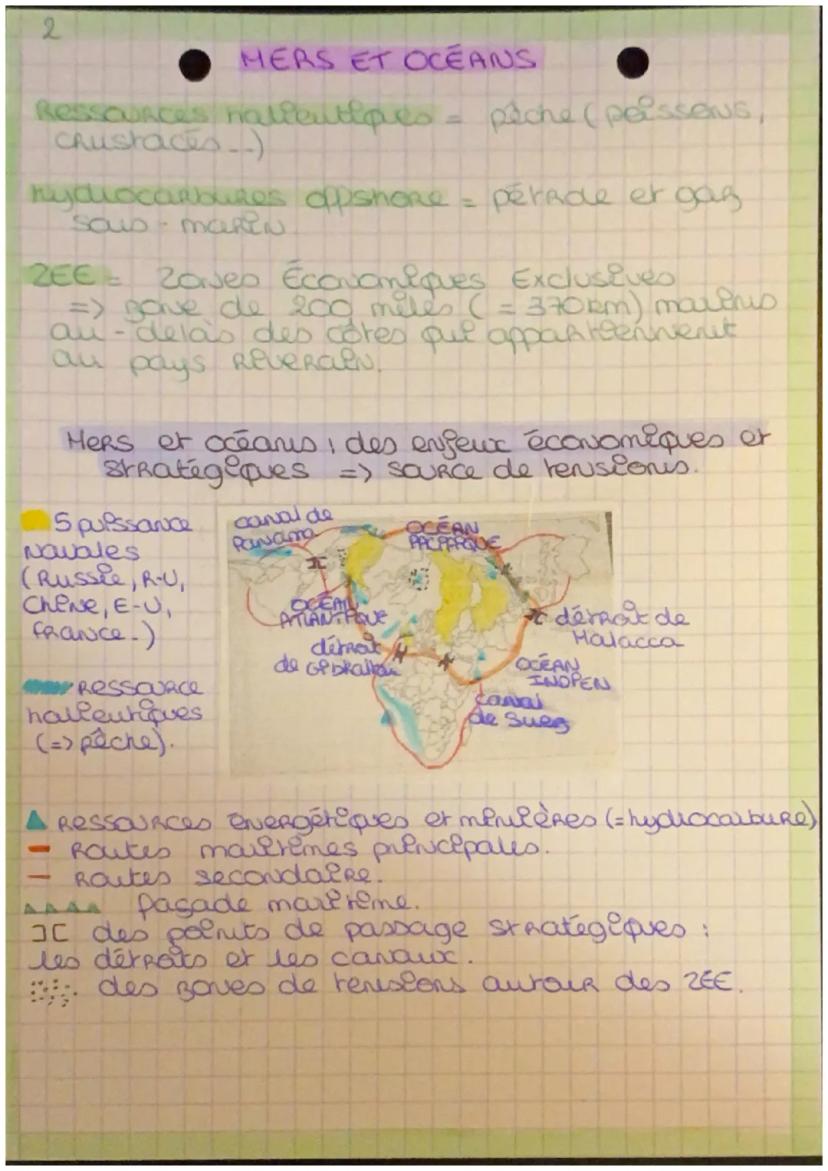 2
MERS ET OCÉANS
Ressources halieutiques = pêche (poissons,
crustacés...)
hydrocarbures offshore = pétrole et gaz
sous-marin
ZEE = Zones Économiques Exclusives
=> zone de 200 miles (= 370 km) marins
au-delàs des côtes qui appartiennent
au pays riverain.
Mers et océans : des enjeux économiques et
stratégiques => source de tensions.
5 puissance
navales
(Russie, R-U,
Chine, E-U,
France.)
ressource
halieutiques
(=> pêche).
canal de
Panama
OCÉAN
PACIFIQUE
OCÉAN
ATLANTIQUE
détroit
de Gibraltar
détroit de
Malacca
OCÉAN
INDIEN
canal
de Suez
Ressources énergétiques et minières (=hydrocarbure)
Routes maritimes principales.
Routes secondaire.
façade maritime.
des points de passage stratégiques :
les détroits et les canaux.
des zones de tensions autour des ZEE.